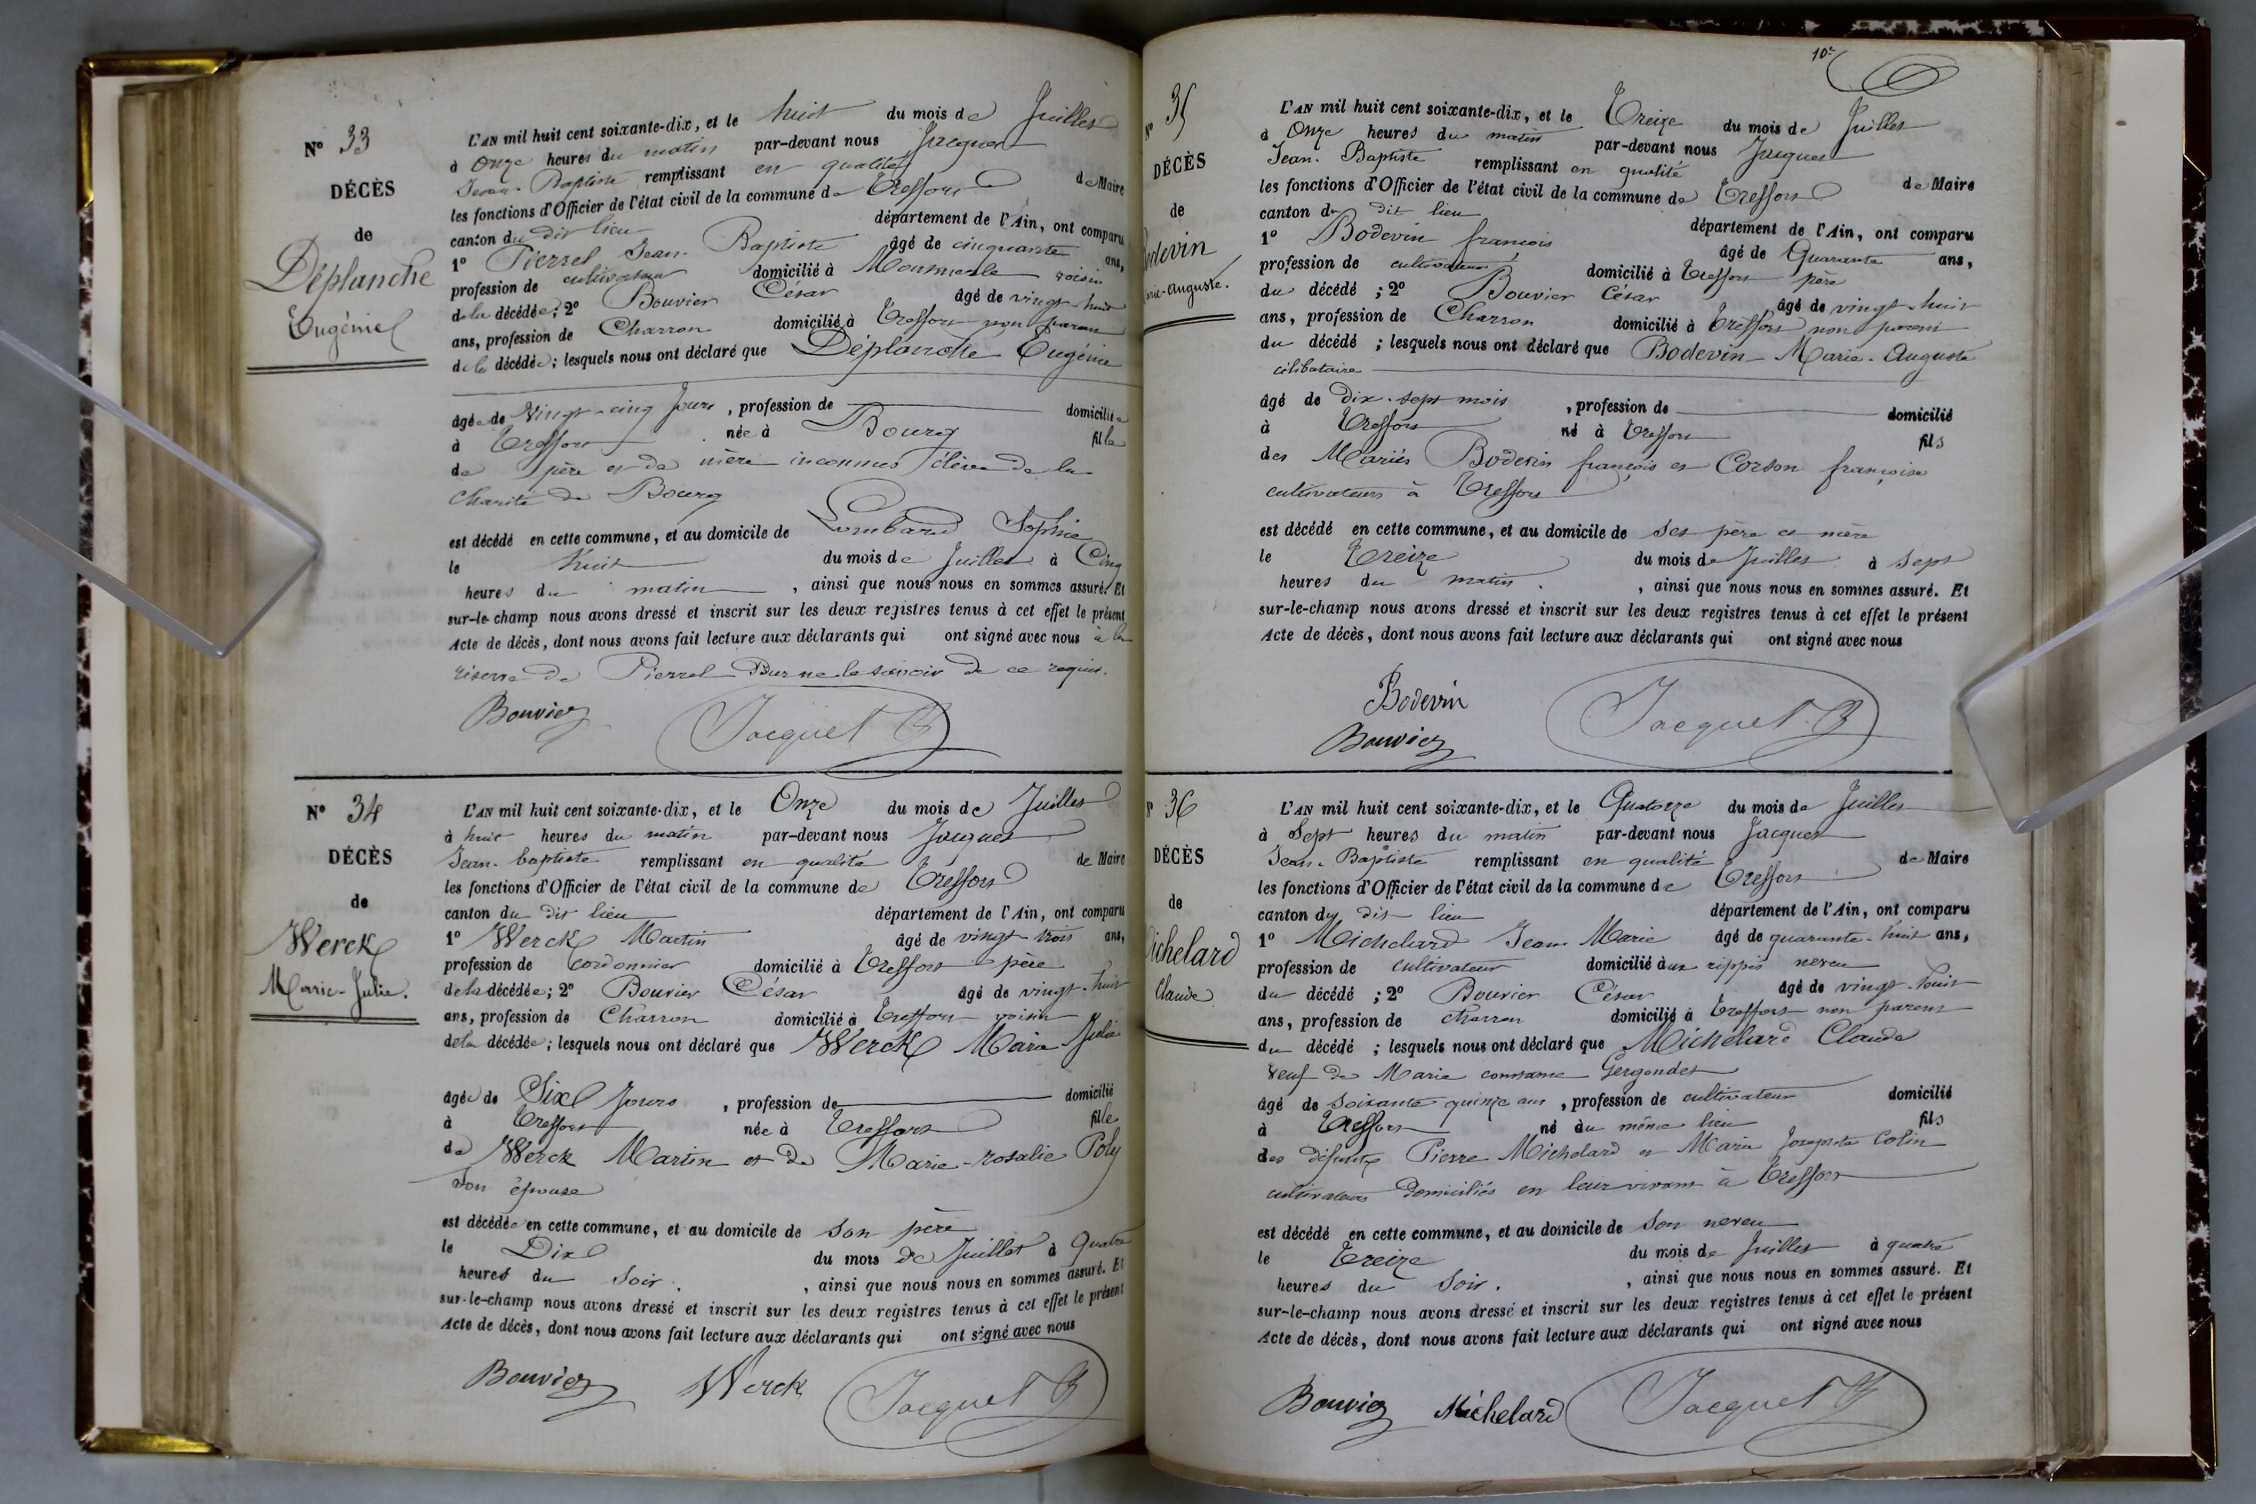 N° 33
DÉCÈS
de
Déplanche
Eugénie
L'AN mil huit cent soixante-dix, et le huit du mois de Juillet
à Onze heures du matin par-devant nous Jacquet
Jean-Baptiste remplissant en qualité de Maire
les fonctions d'Officier de l'état civil de la commune de Treffort
canton du dit lieu département de l'Ain, ont comparu
1° Pierrel Jean-Baptiste âgé de cinquante ans,
profession de cultivateur domicilié à voisin
de la décédée; 2° Bouvier César âgé de vingt-huit
ans, profession de Charron domicilié à Treffort non parent
de la décédée; lesquels nous ont déclaré que Déplanche Eugénie
âgée de Vingt-cinq Jours, profession de domiciliée
à Treffort née à Bourg fille
de père et de mère inconnus élève de la
Charité de Bourg
est décédé en cette commune, et au domicile de Lombard Sophie
le huit du mois de Juillet à Cinq
heures du matin, ainsi que nous nous en sommes assuré. Et
sur-le-champ nous avons dressé et inscrit sur les deux registres tenus à cet effet le présent
Acte de décès, dont nous avons fait lecture aux déclarants qui ont signé avec nous à la
réserve de Pierrel Pour ne le savoir de ce requis.
Bouvier Jacquet B
N° 34
DÉCÈS
de
Werck
Marie-Julie.
L'AN mil huit cent soixante-dix, et le Onze du mois de Juillet
à huit heures du matin par-devant nous Jacquet
Jean-baptiste remplissant en qualité de Maire
les fonctions d'Officier de l'état civil de la commune de Treffort
canton du dit lieu département de l'Ain, ont comparu
1° Werck Martin âgé de vingt-trois ans,
profession de cordonnier domicilié à Treffort père
de la décédée; 2° Bouvier César âgé de vingt-huit
ans, profession de Charron domicilié à Treffort voisin
de la décédée; lesquels nous ont déclaré que Werck Marie Julie
âgée de Six Jours, profession de domicilié
à Treffort née à Treffort fille
de Werck Martin et de Marie-rosalie Poly
son épouse
est décédée en cette commune, et au domicile de son père
le Dix du mois de Juillet à Quatre
heures du soir., ainsi que nous nous en sommes assuré. Et
sur-le-champ nous avons dressé et inscrit sur les deux registres tenus à cet effet le présent
Acte de décès, dont nous avons fait lecture aux déclarants qui ont signé avec nous
Bouvier Werck Jacquet B
N° 35
DÉCÈS
de
Bodevin
Marie-Auguste.
L'AN mil huit cent soixante-dix, et le Treize du mois de Juillet
à Onze heures du matin par-devant nous Jacquet
Jean-Baptiste remplissant en qualité de Maire
les fonctions d'Officier de l'état civil de la commune de Treffort
canton du dit lieu département de l'Ain, ont comparu
1° Bodevin françois âgé de Quarante ans,
profession de cultivateur domicilié à Treffort père
du décédé; 2° Bouvier César âgé de vingt-huit
ans, profession de Charron domicilié à Treffort non parent
du décédé; lesquels nous ont déclaré que Bodevin Marie-Auguste
célibataire
âgé de Dix-sept mois, profession de domicilié
à Treffort né à Treffort fils
des Mariés Bodevin françois et Corson françoise
cultivateurs à Treffort
est décédé en cette commune, et au domicile de ses père et mère
le treize du mois de Juillet à sept
heures du matin., ainsi que nous nous en sommes assuré. Et
sur-le-champ nous avons dressé et inscrit sur les deux registres tenus à cet effet le présent
Acte de décès, dont nous avons fait lecture aux déclarants qui ont signé avec nous
Bodevin
Bouvier Jacquet B
N° 36
DÉCÈS
de
Michelard
Claude
L'AN mil huit cent soixante-dix, et le Quatorze du mois de Juillet
à Sept heures du matin par-devant nous Jacquet
Jean-Baptiste remplissant en qualité de Maire
les fonctions d'Officier de l'état civil de la commune de Treffort
canton du dit lieu département de l'Ain, ont comparu
1° Michelard Jean Marie âgé de quarante-huit ans,
profession de cultivateur domicilié aux rippes neveu
du décédé; 2° Bouvier César âgé de vingt-huit
ans, profession de charron domicilié à Treffort non parent
du décédé; lesquels nous ont déclaré que Michelard Claude
veuf de Marie constance Gergondet
âgé de soixante quinze ans, profession de cultivateur domicilié
à Treffort né au même lieu fils
des défunts Pierre Michelard et Marie Josephte Colin
cultivateurs domiciliés en leur vivant à Treffort
est décédé en cette commune, et au domicile de son neveu
le treize du mois de Juillet à quatre
heures du soir., ainsi que nous nous en sommes assuré. Et
sur-le-champ nous avons dressé et inscrit sur les deux registres tenus à cet effet le présent
Acte de décès, dont nous avons fait lecture aux déclarants qui ont signé avec nous
Bouvier Michelard Jacquet B